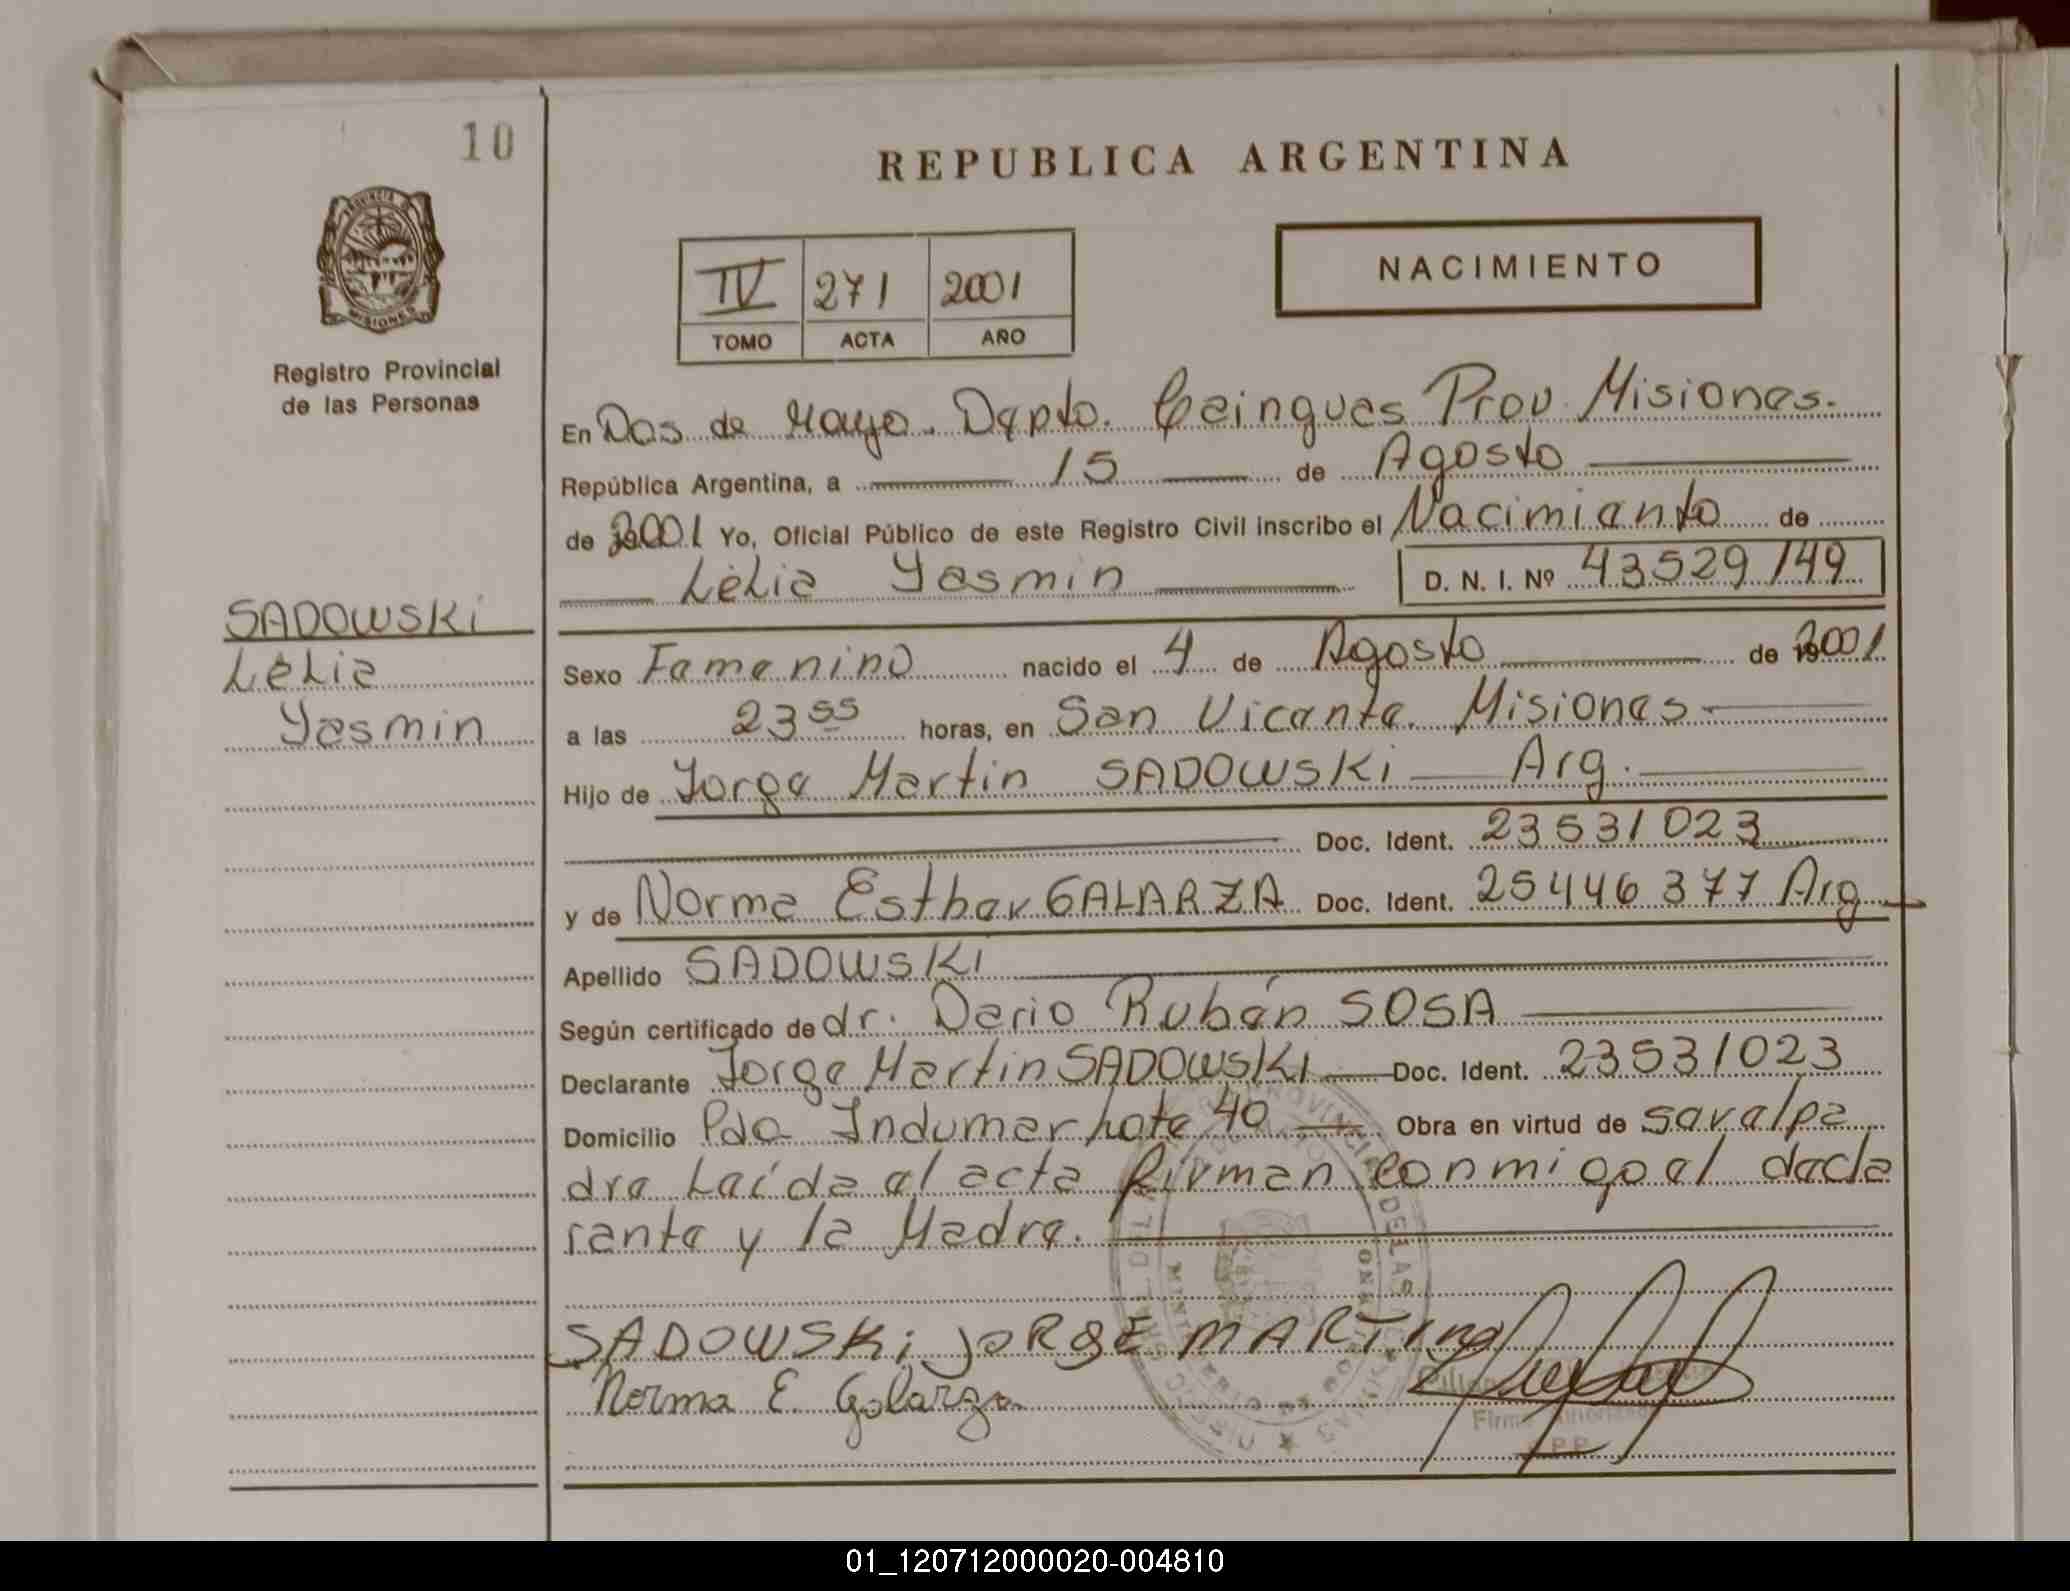 10
REPUBLICA ARGENTINA
PROVINCIA DE
MISIONES
IV 271 2001
TOMO ACTA AÑO
NACIMIENTO
Registro Provincial
de las Personas
En Dos de Mayo. Depto. Caingues Prov Misiones.
República Argentina, a 15 de Agosto
de 2001 Yo, Oficial Público de este Registro Civil inscribo el Nacimiento de
Lèlia Yasmin D. N. I. Nº 43529149
SADOWSKi
Lèlia
Yasmin
Sexo Femenino nacido el 4 de Agosto de 2001
a las 23 55 horas, en San Vicente. Misiones
Hijo de Jorge Martin SADOWSKi Arg.
Doc. Ident. 23531023
y de Norma Esther GALARZA Doc. Ident. 25446377 Arg
Apellido SADOWSKi
Según certificado de dr. Dario Rubén SOSA
Declarante Jorge Martin SADOWSKI Doc. Ident. 23531023
Domicilio Pdo Indumar lote 40 Obra en virtud de ser el pa
dre Leída el acta firman conmigo el decla
rante y la Madre.
SADOWSKi JORGE MARTin
Norma E. Galarza
Firma Autorizada
01_120712000020-004810